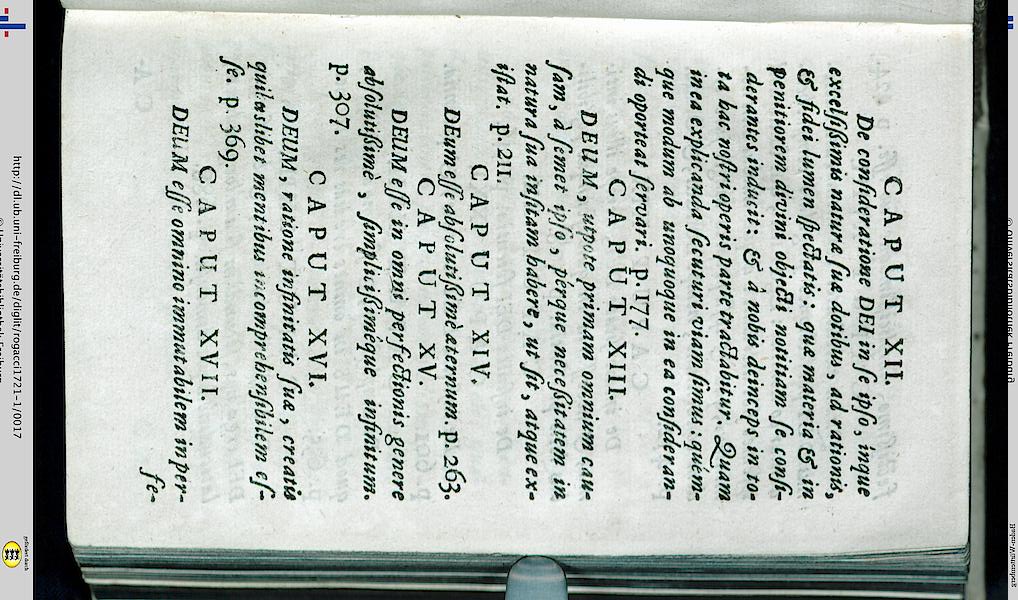 CAPUT XII.
De consideratione DEI in se ipso, inque
excelsissimis naturæ suæ dotibus, ad rationis,
& fidei lumen spectatis: quæ materia & in
penitiorem divini objecti notitiam se consi-
derantes inducit: & à nobis deinceps in to-
ta hac nostri operis parte tractabitur. Quam
in ea explicanda secuturi viam simus: quem-
que modum ab unoquoque in ea consideran-
di oporteat servari. p. 177.
CAPUT XIII.
DEUM, utpote primam omnium cau-
sam, à semet ipso, perque necessitatem in
natura sua insitam habere, ut sit, atque ex-
istat. p. 211.
CAPUT XIV.
DEum esse absolutissimè æternum. p. 263.
CAPUT XV.
DEUM esse in omni perfectionis genere
absolutissimè, simplicissiméque infinitum.
p. 307.
CAPUT XVI.
DEUM, ratione infinitatis suæ, creatis
quibuslibet mentibus incomprehensibilem es-
se. p. 369.
CAPUT XVII.
DEUM esse omnino immutabilem in per-
fe-
http://dl.ub.uni-freiburg.de/diglit/rogacci1721-1/0017
© Universitätsbibliothek Freiburg
gefördert durch